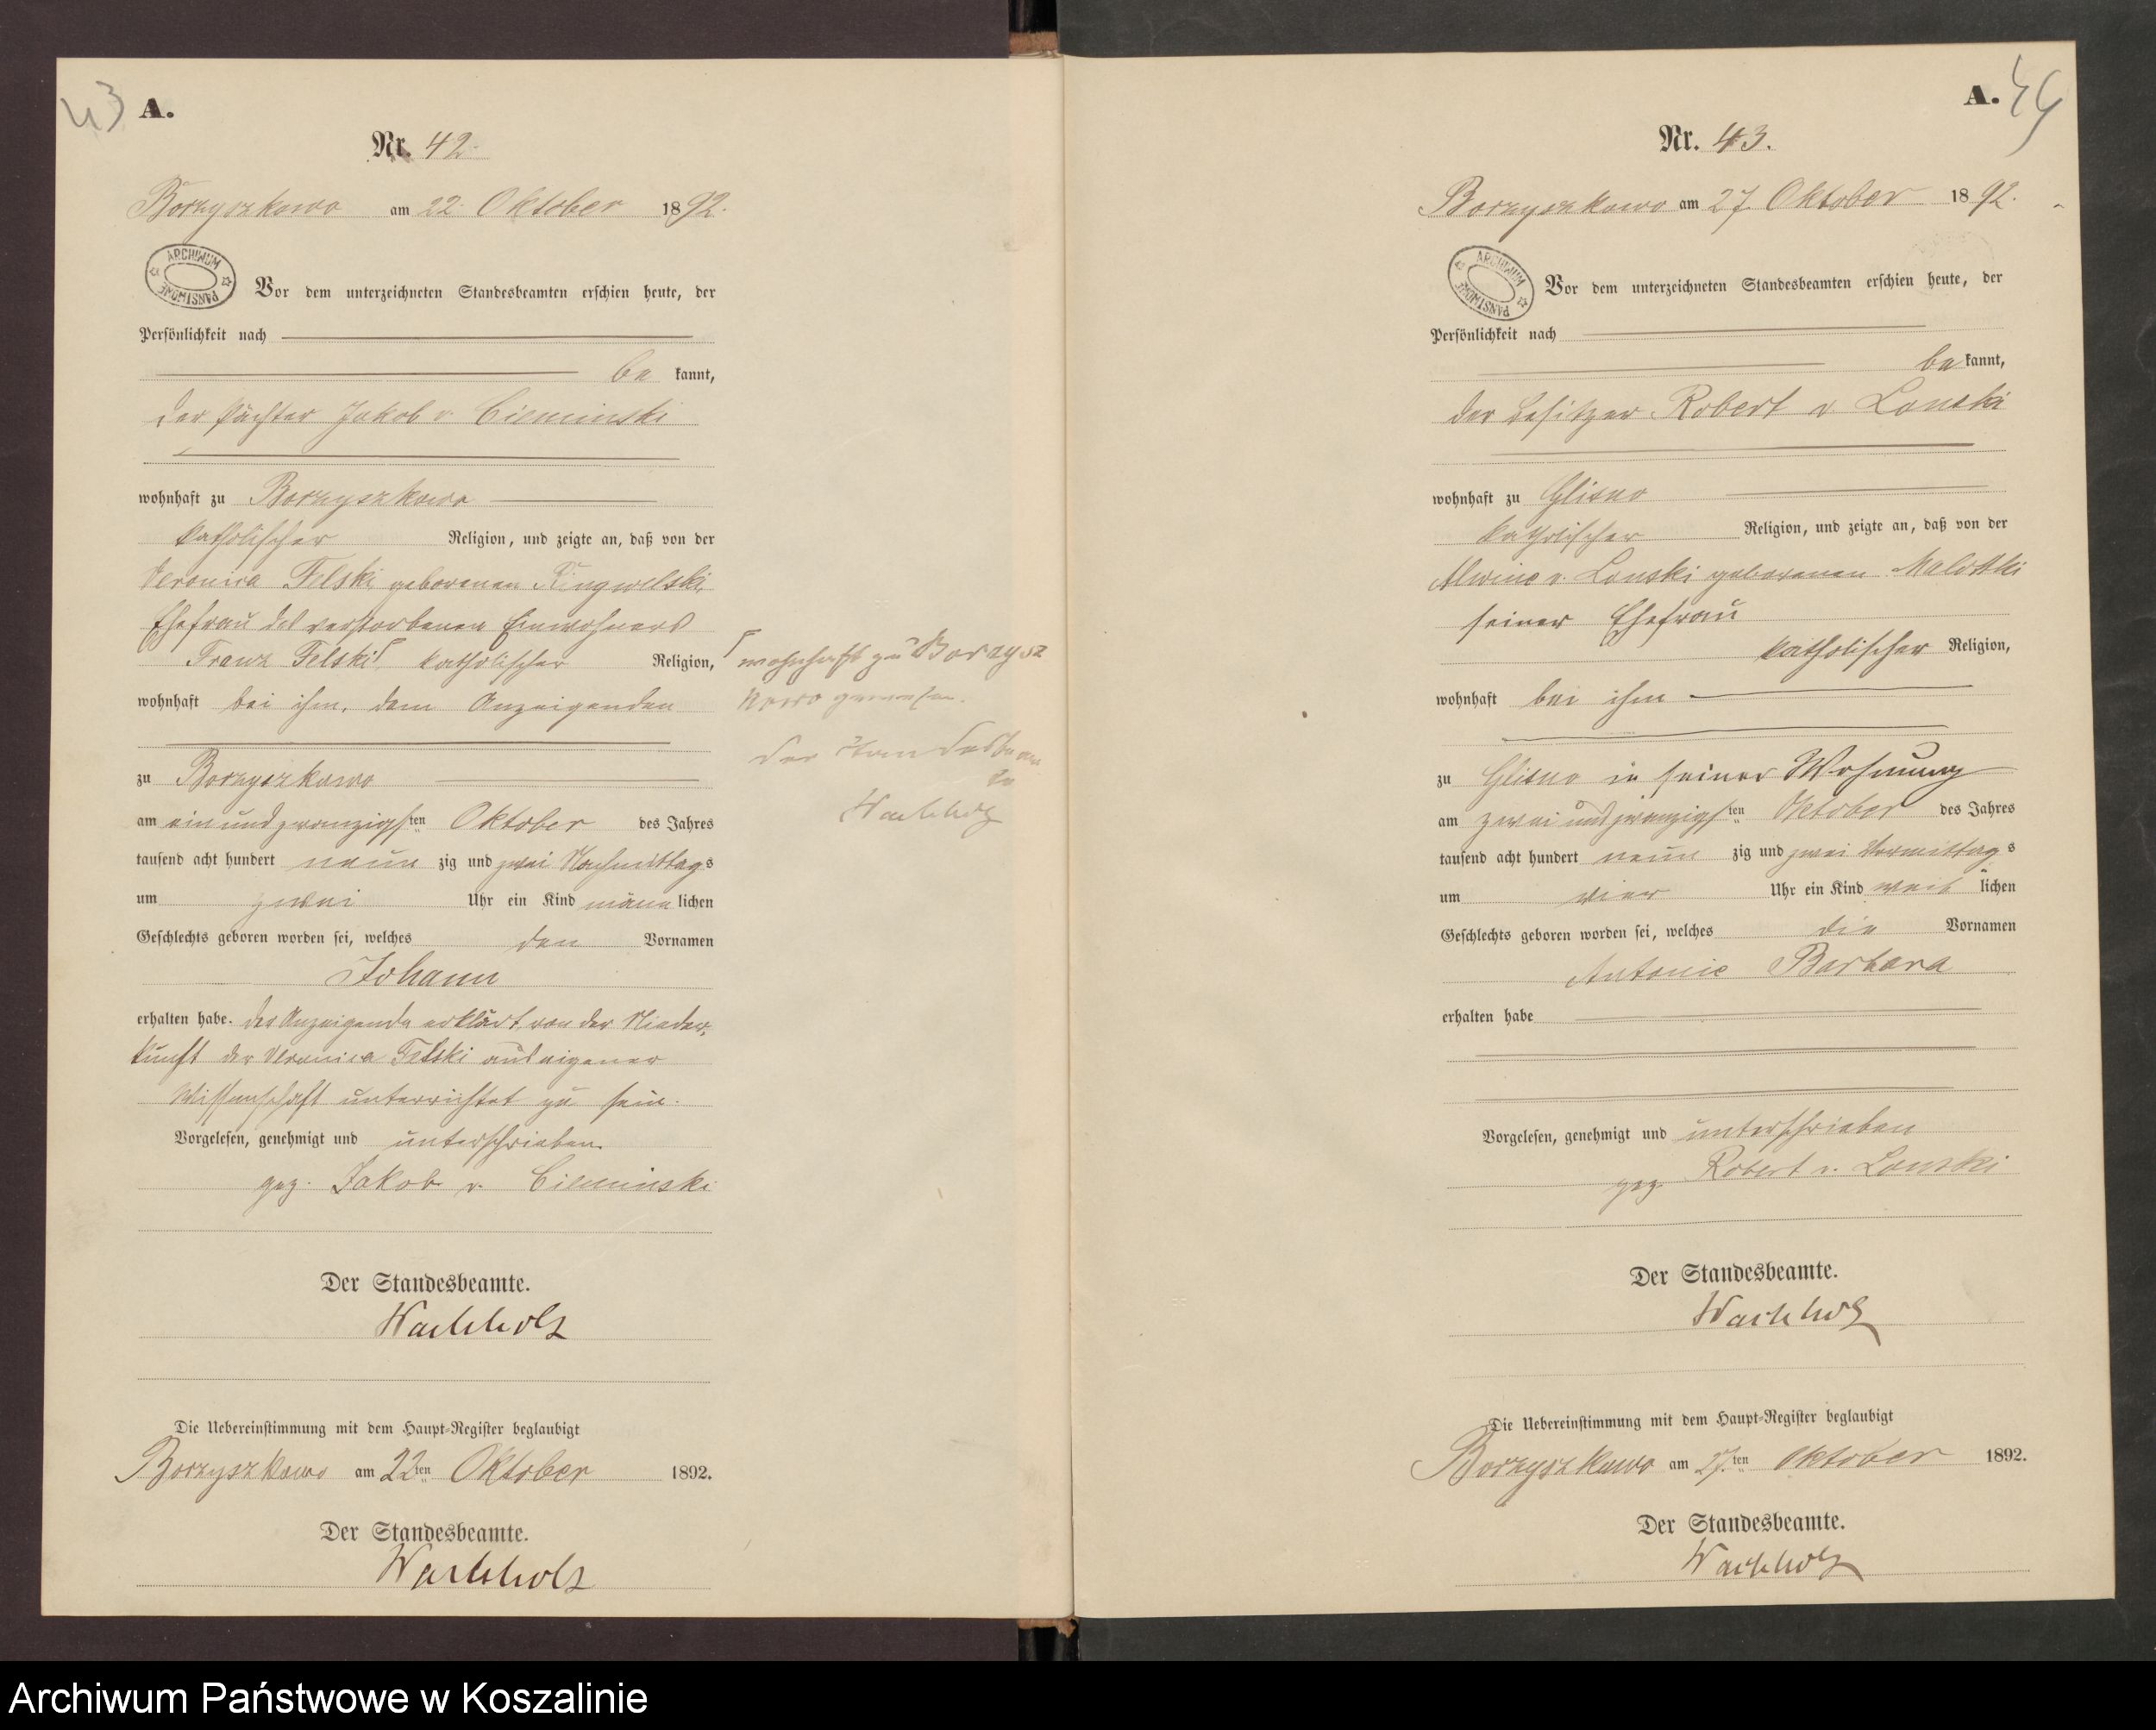 43 A.
Nr. 42.
Borzyszkowo am 22. Oktober 1892.
ARCHIWUM PAŃSTWOWE
Vor dem unterzeichneten Standesbeamten erschien heute, der
Persönlichkeit nach
be kannt,
der Pächter Jakob v. Cieminski
wohnhaft zu Borzyszkowo
katholischer Religion, und zeigte an, daß von der
Veronica Felski, geborenen
Ehefrau des verstorbenen Einwohners
Franz Felski, katholischer Religion,
wohnhaft bei ihm, dem Anzeigenden
zu Borzyszkowo
am ein und zwanzigsten Oktober des Jahres
tausend acht hundert neun zig und zwei Nachmittags
um zwei Uhr ein Kind männlichen
Geschlechts geboren worden sei, welches den Vornamen
Johann
erhalten habe. Der Anzeigende erklärt, von der Nieder-
kunft der Veronica Felski aus eigener
Wissenschaft unterrichtet zu sein.
Vorgelesen, genehmigt und unterschrieben.
gez. Jakob v. Cieminski
Der Standesbeamte.
Wachholz
Die Uebereinstimmung mit dem Haupt-Register beglaubigt
Borzyszkowo am 22ten Oktober 1892.
Der Standesbeamte.
Wachholz
wohnhaft zu Borzysz
kowo gewesen.
Der Standesbeam
te
Wachholz
A.
Nr. 43.
Borzyszkowo am 27. Oktober 1892.
ARCHIWUM PAŃSTWOWE
Vor dem unterzeichneten Standesbeamten erschien heute, der
Persönlichkeit nach
be kannt,
der Besitzer Robert v. Lonski
wohnhaft zu Glisno
katholischer Religion, und zeigte an, daß von der
Alwine v. Lonski geborenen Malottki
seiner Ehefrau
katholischer Religion,
wohnhaft bei ihm
zu Glisno in seiner Wohnung
am zwei und zwanzigsten Oktober des Jahres
tausend acht hundert neun zig und zwei Vormittags
um vier Uhr ein Kind weiblichen
Geschlechts geboren worden sei, welches die Vornamen
Antonie Barbara
erhalten habe
Vorgelesen, genehmigt und unterschrieben
gez. Robert v. Lonski
Der Standesbeamte.
Wachholz
Die Uebereinstimmung mit dem Haupt-Register beglaubigt
Borzyszkowo am 27.ten Oktober 1892.
Der Standesbeamte.
Wachholz
Archiwum Państwowe w Koszalinie